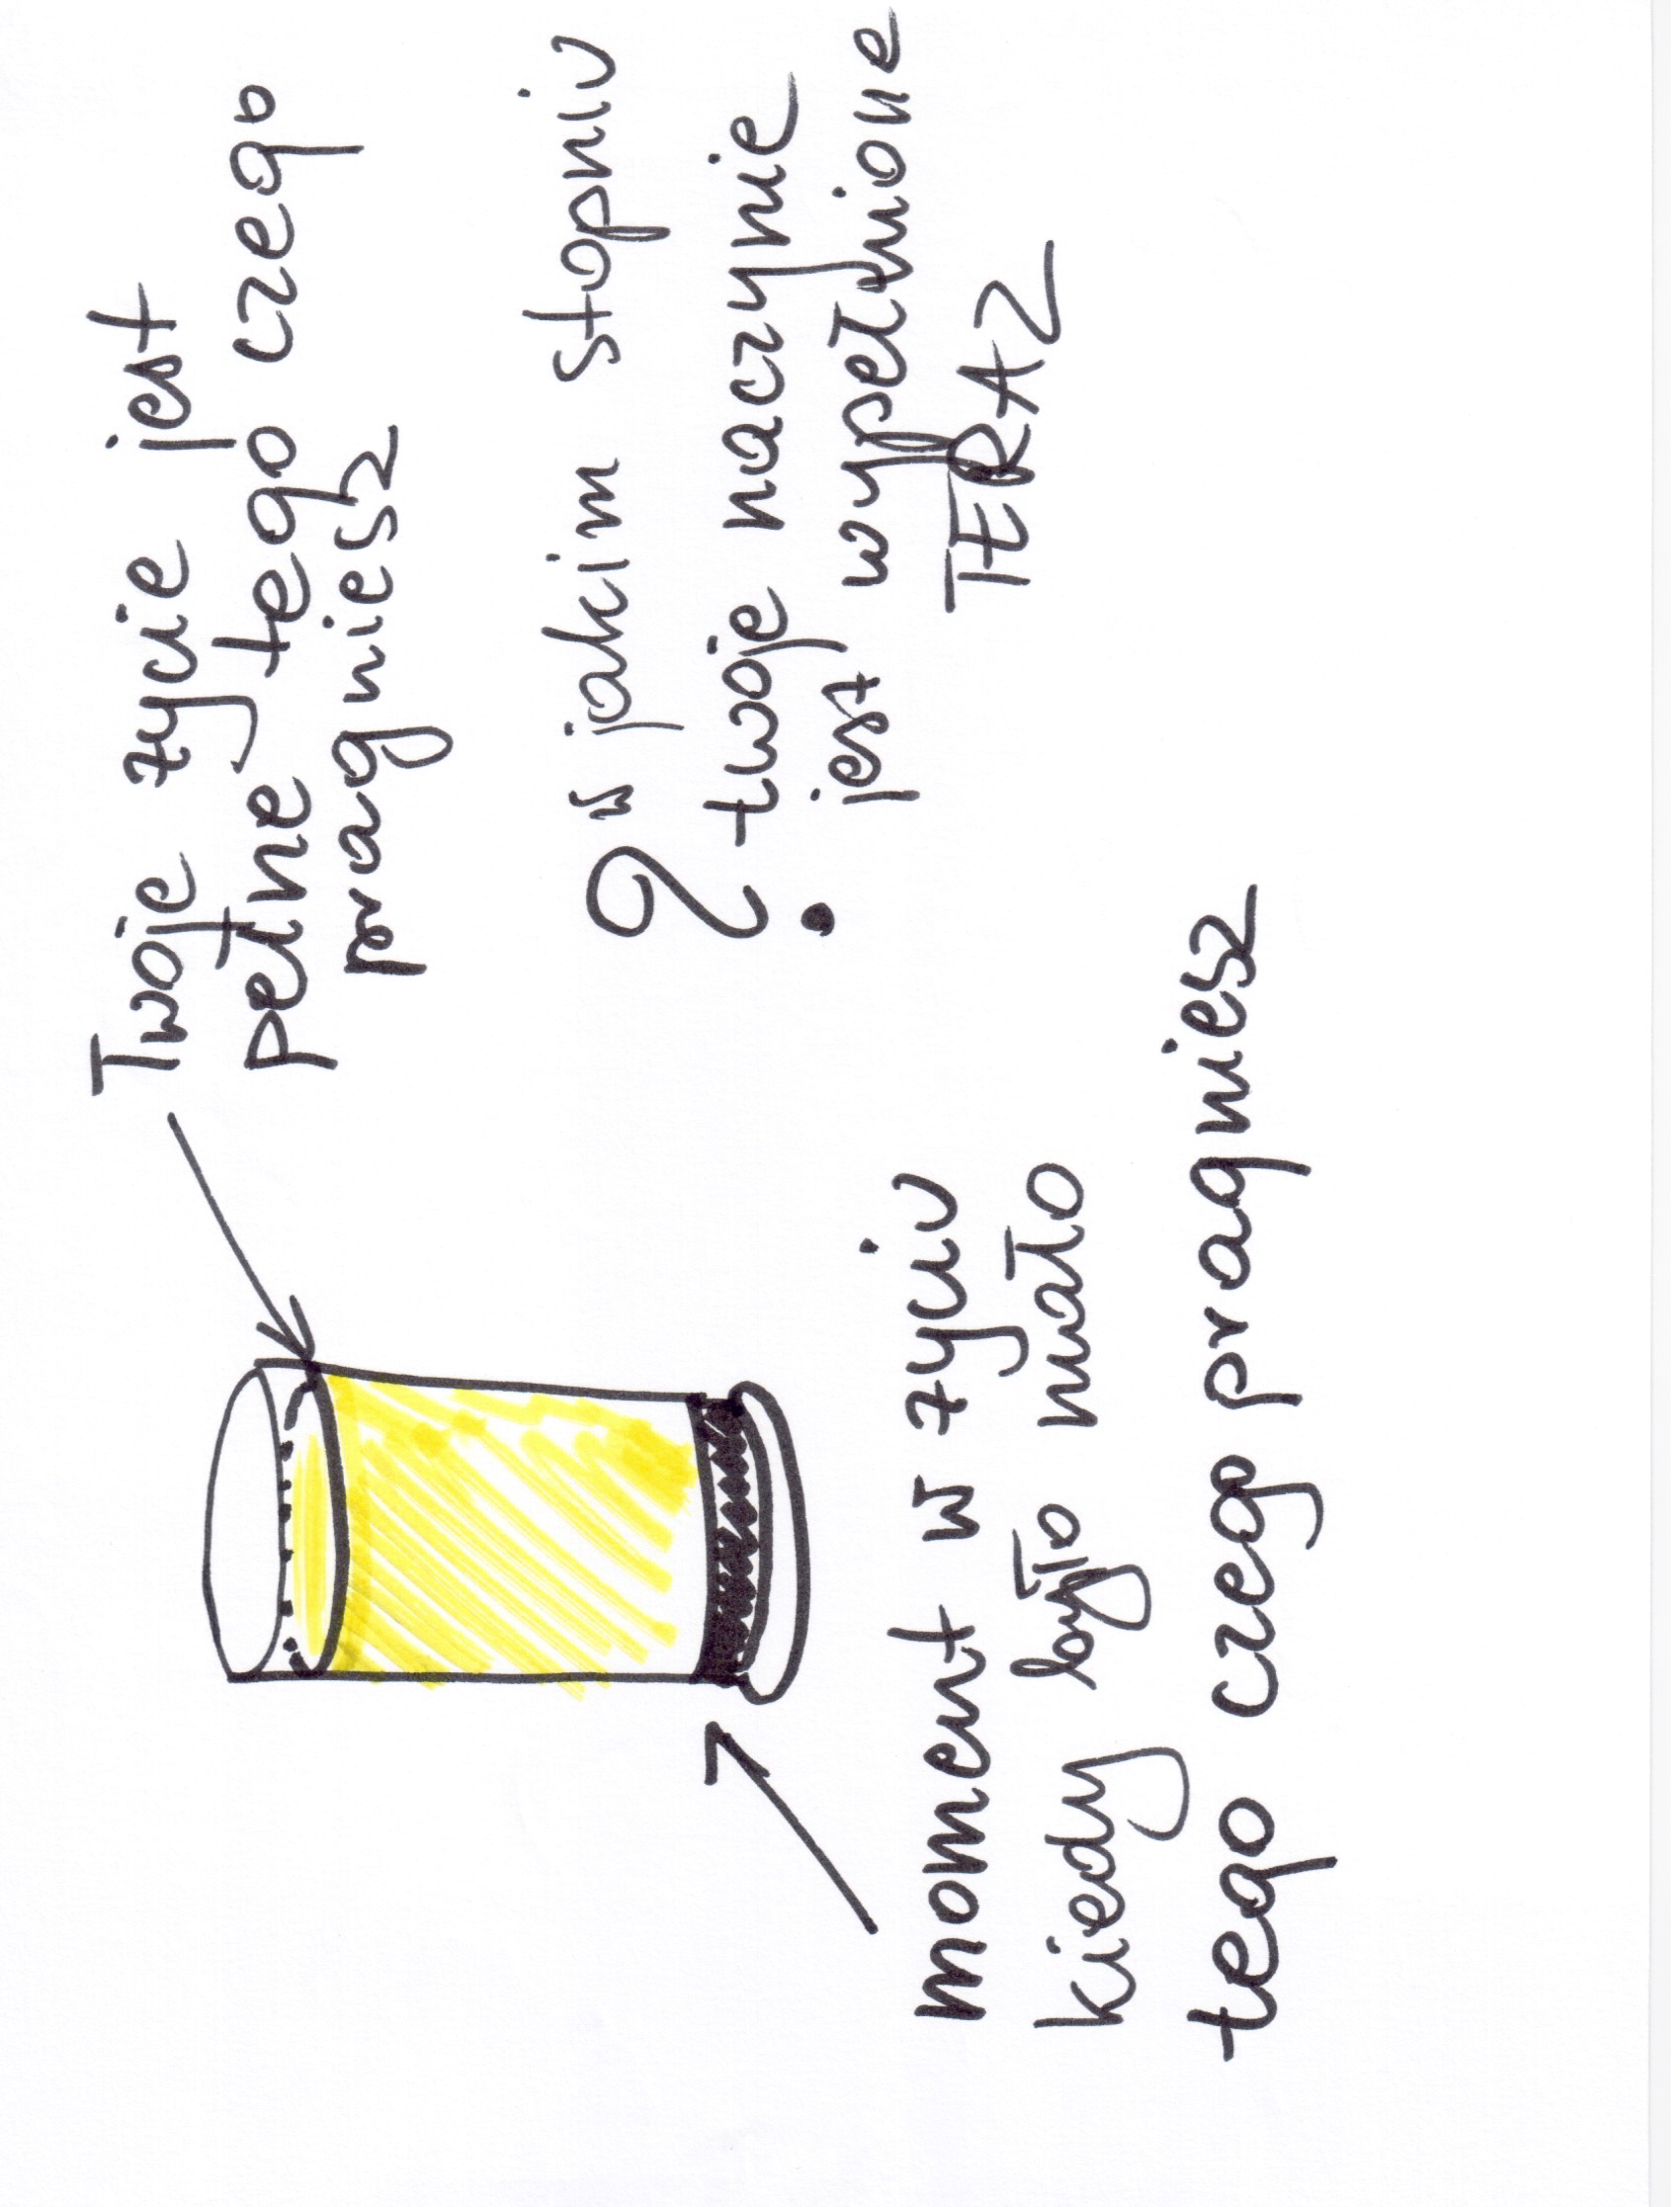 Twoje życie jest
pełne tego czego
pragniesz
w jakim stopniu
? twoje naczynie
jest wypełnione
TERAZ
moment w życiu
kiedy było mało
tego czego pragniesz